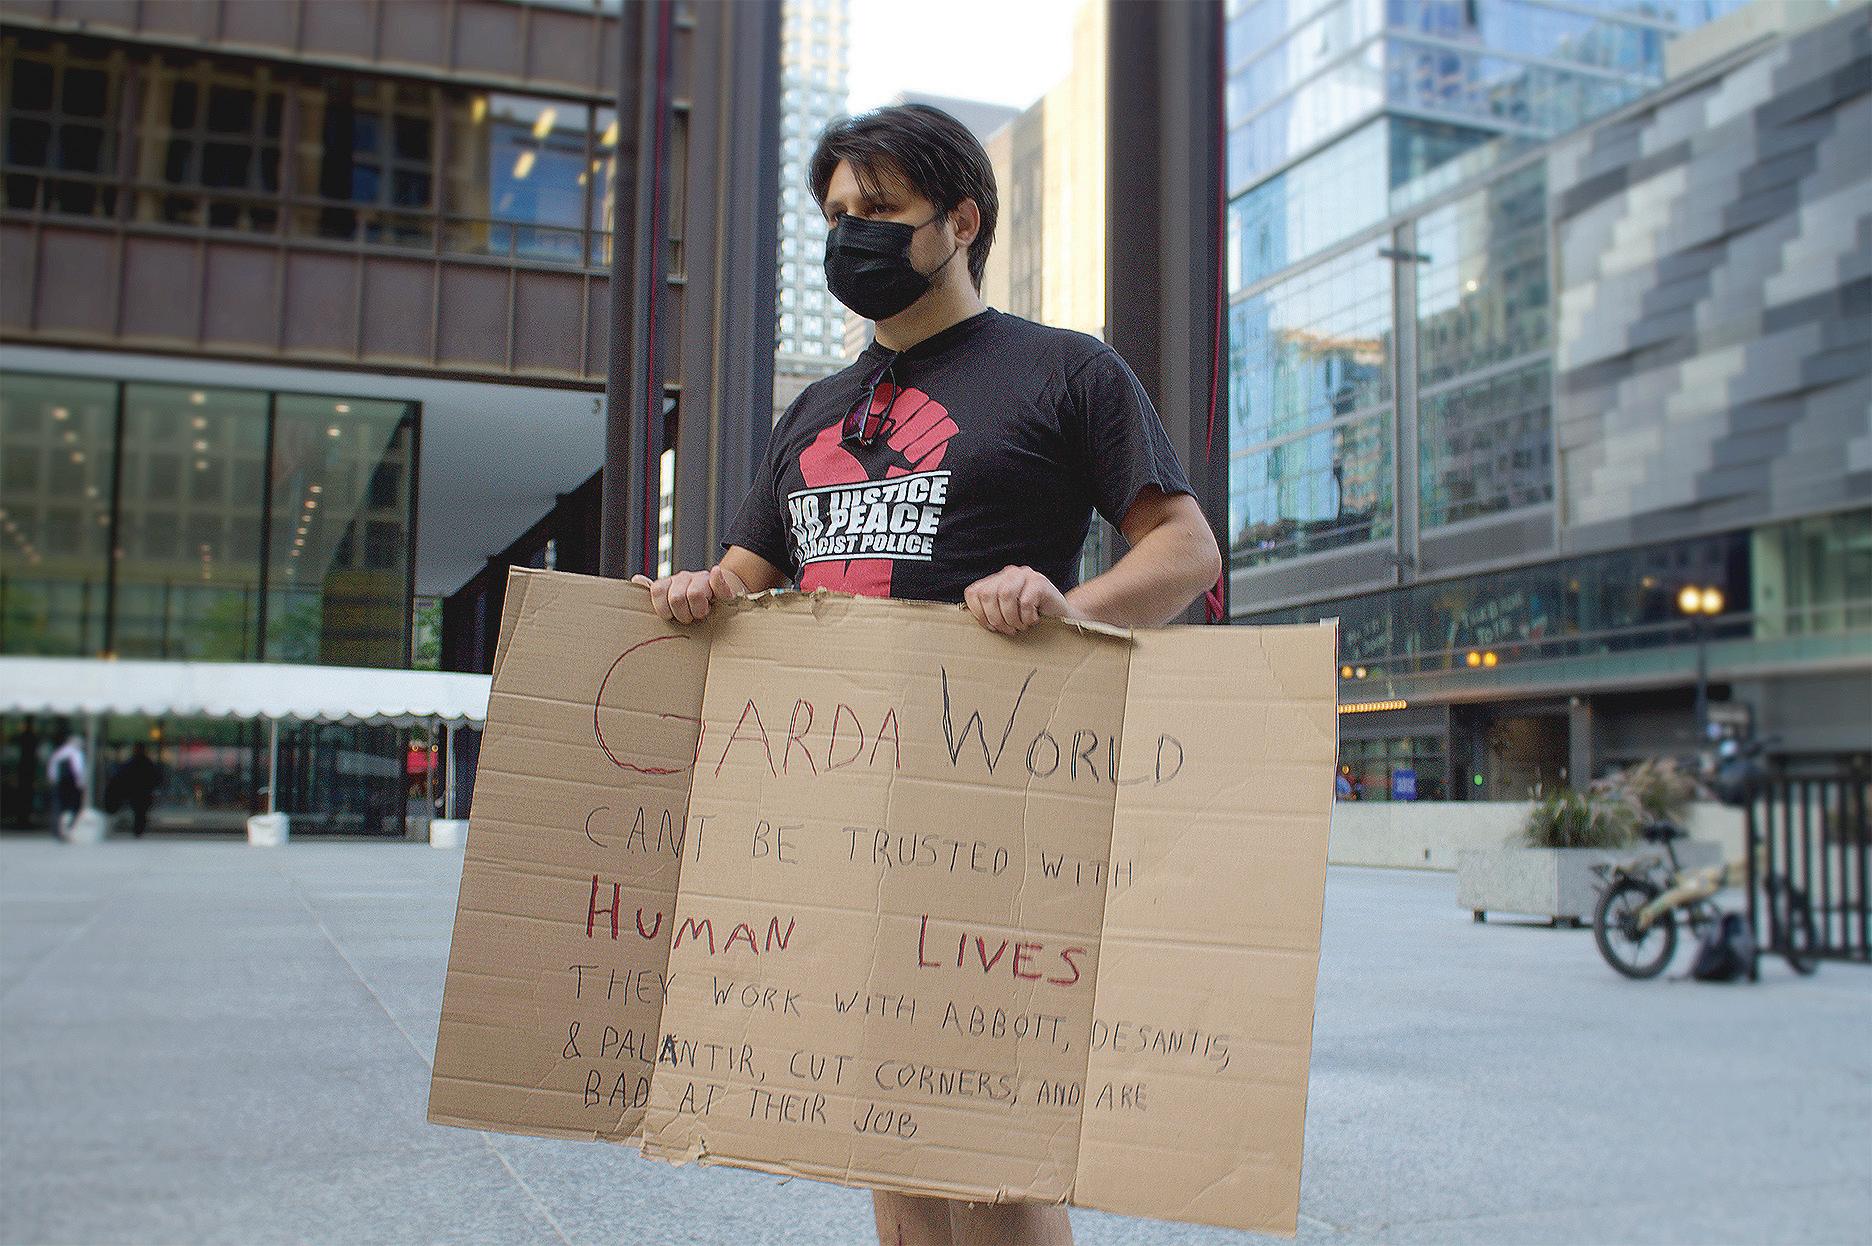 NO JUSTICE
NO PEACE
RACIST POLICE
GARDA WORLD
CANT BE TRUSTED WITH
HUMAN LIVES
THEY WORK WITH ABBOTT, DESANTIS,
& PALANTIR, CUT CORNERS, AND ARE
BAD AT THEIR JOB